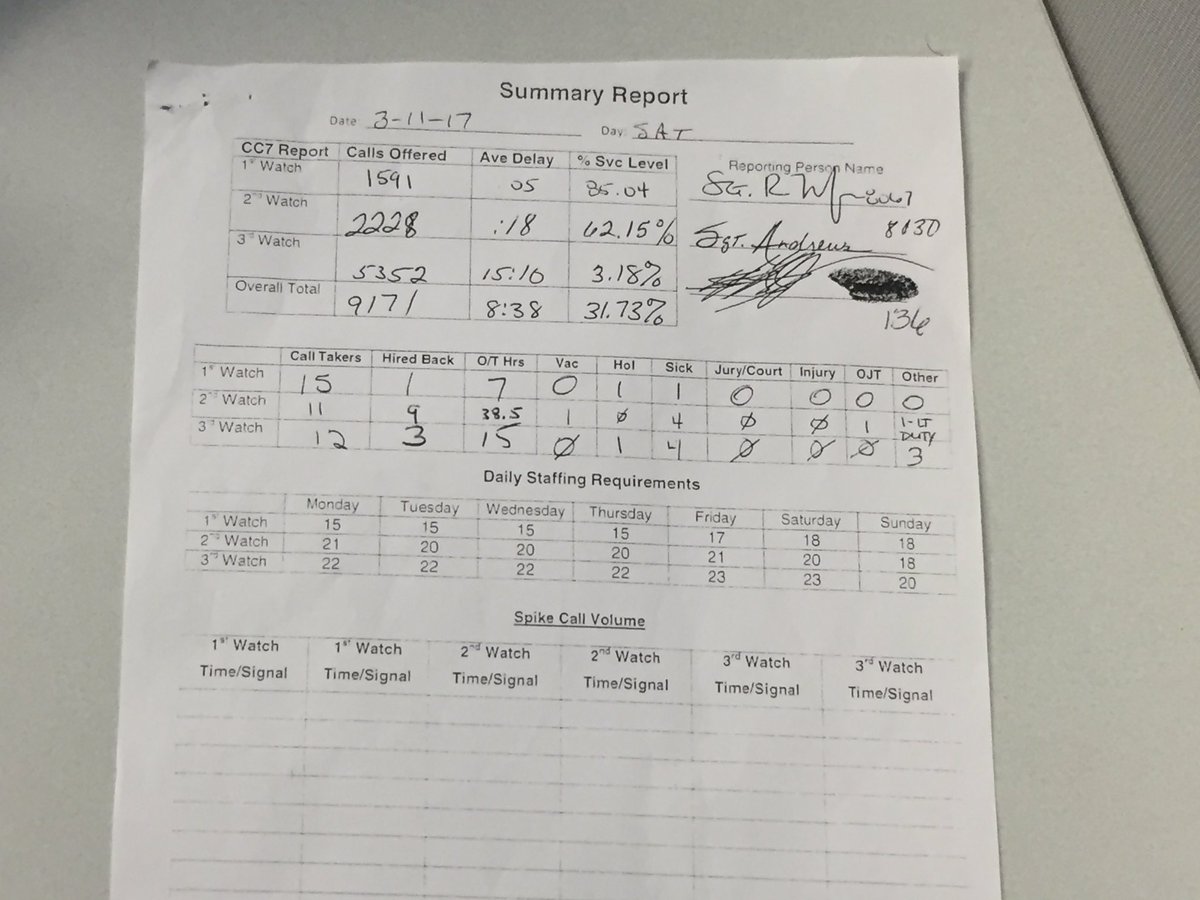 Summary Report
Date 3-11-17 Day SAT
CC7 Report Calls Offered Ave Delay % Svc Level Reporting Person Name
1st Watch 1591 05 85.04 SG. R
2nd Watch 2228 :18 62.15% 8130
3rd Watch 5352 15:10 3.18% Sgt. Andrews
Overall Total 9171 8:38 31.73% 136
Call Takers Hired Back O/T Hrs Vac Hol Sick Jury/Court Injury OJT Other
1st Watch 15 1 7 0 1 1 0 0 0 0
2nd Watch 11 9 38.5 1 Ø 4 Ø Ø 1 1-LT DUTY
3rd Watch 12 3 15 Ø 1 4 Ø Ø Ø 3
Daily Staffing Requirements
Monday Tuesday Wednesday Thursday Friday Saturday Sunday
1st Watch 15 15 15 15 17 18 18
2nd Watch 21 20 20 20 21 20 18
3rd Watch 22 22 22 22 23 23 20
Spike Call Volume
1st Watch 1st Watch 2nd Watch 2nd Watch 3rd Watch 3rd Watch
Time/Signal Time/Signal Time/Signal Time/Signal Time/Signal Time/Signal